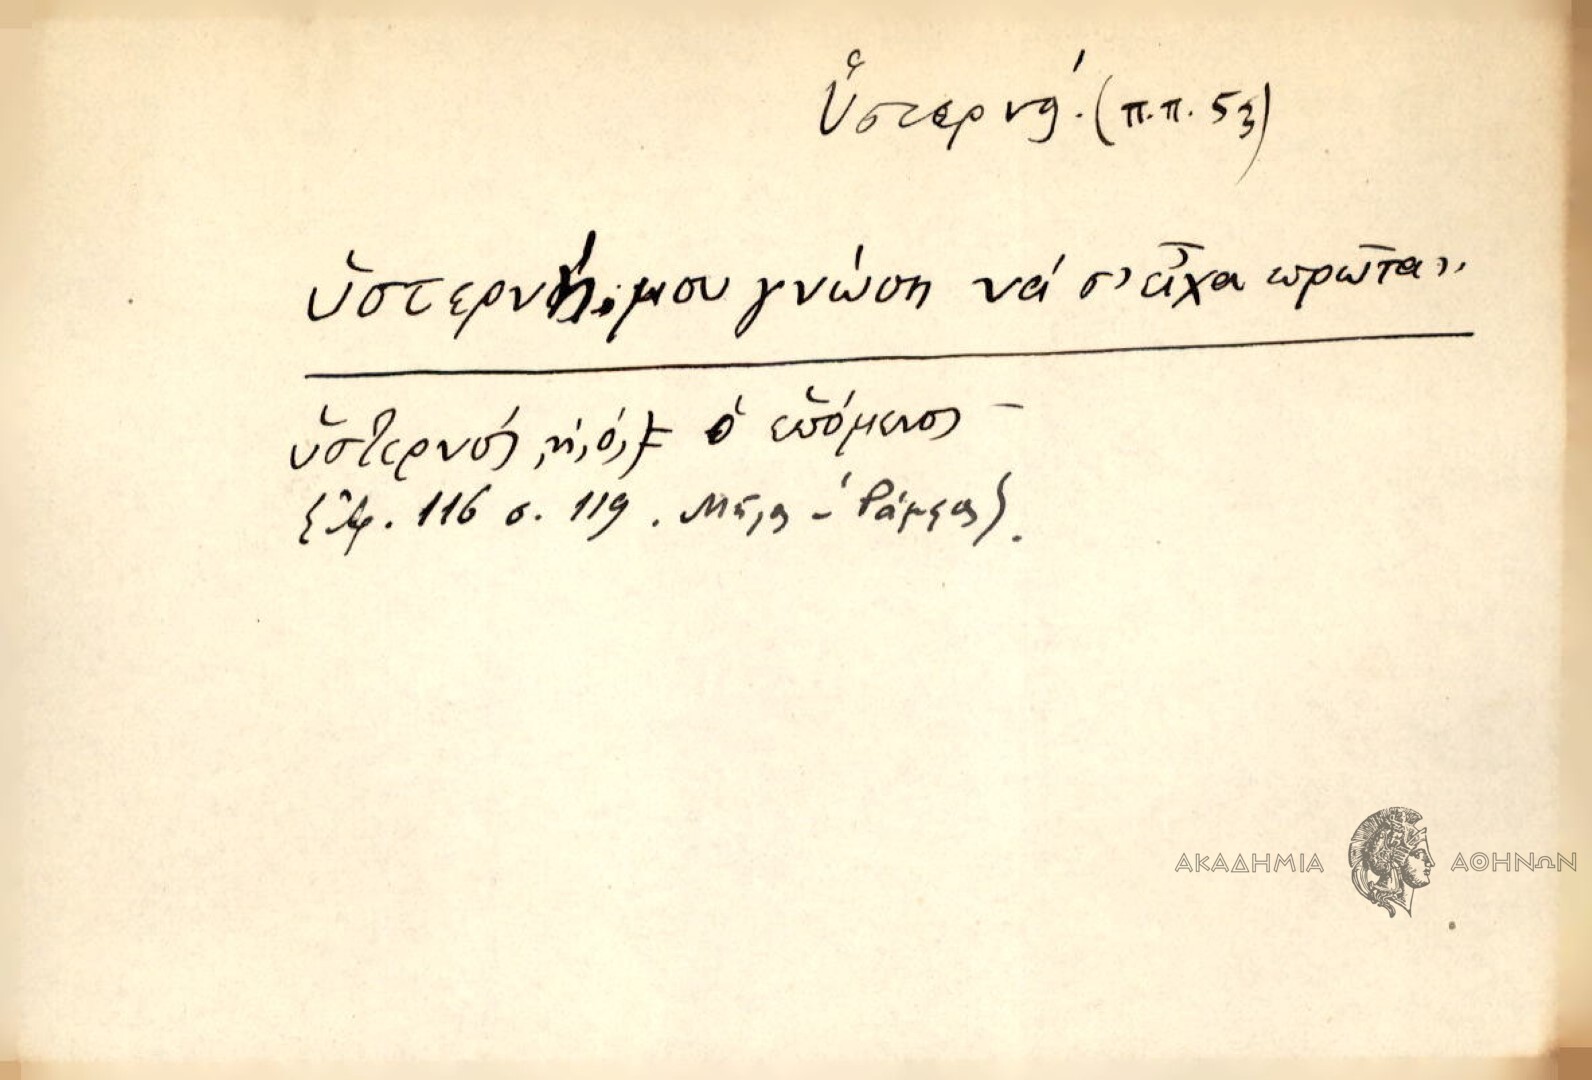 Ὑστερνή. (π.π. 53)
ὑστερνή μου γνώση νά σ' εἶχα πρῶτα..
ὑστερνός, ή, ό, = ὁ ἑπόμενος –
116 σ. 119.
ΑΚΑΔΗΜΙΑ ΑΘΗΝΩΝ